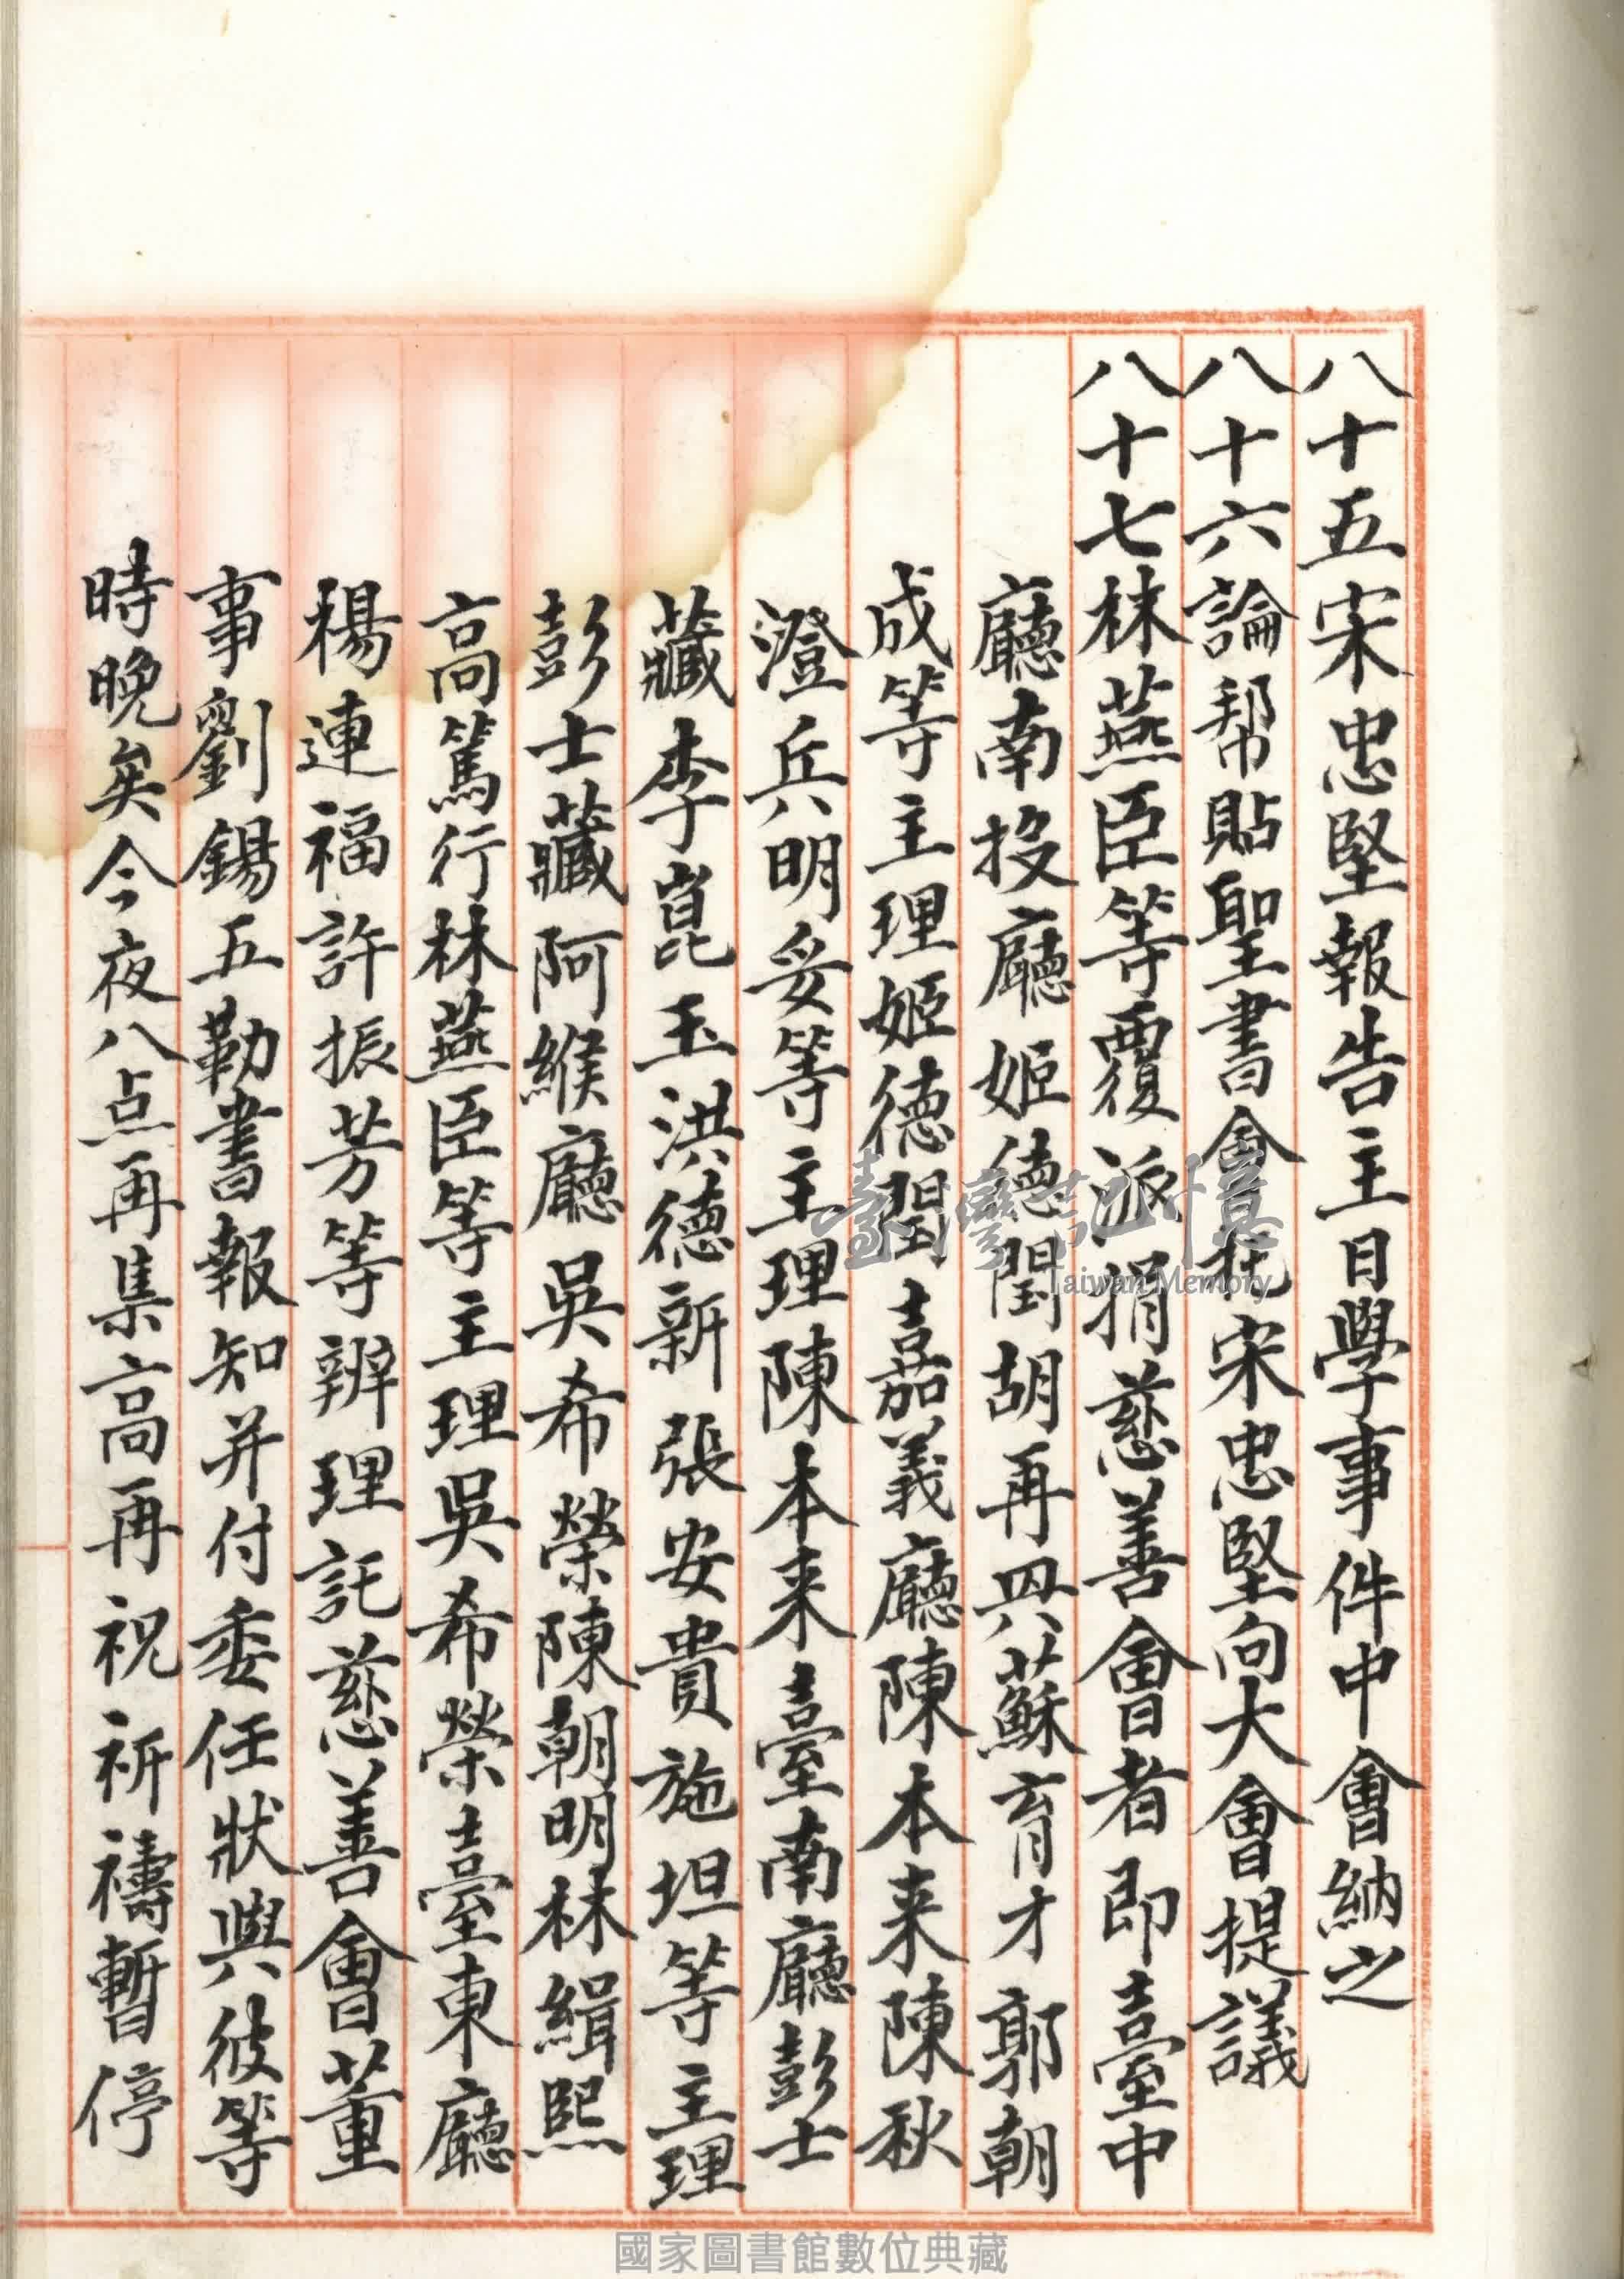 八十五宋忠堅報告主日學事件中會納之
八十六論幫貼聖書會托宋忠堅向大會提議
八十七林燕臣等覆派捐慈善會者即臺中
廳南投廳姬德閏胡再興蘇育才郭朝
成等主理姬德閏嘉義廳陳本来陳秋
澄兵明妥等主理陳本来臺南廳彭士
藏李崑玉洪德新張安貴施坦等主理
彭士藏阿緱廳吳希榮陳朝明林緝熙
高篤行林燕臣等主理吳希榮臺東廳
楊連福許振芳等辦理託慈善會董
事劉錫五勒書報知并付委任狀與彼等
時晚矣今夜八点再集高再祝祈禱暫停
臺灣記憶
Taiwan Memory
國家圖書館數位典藏